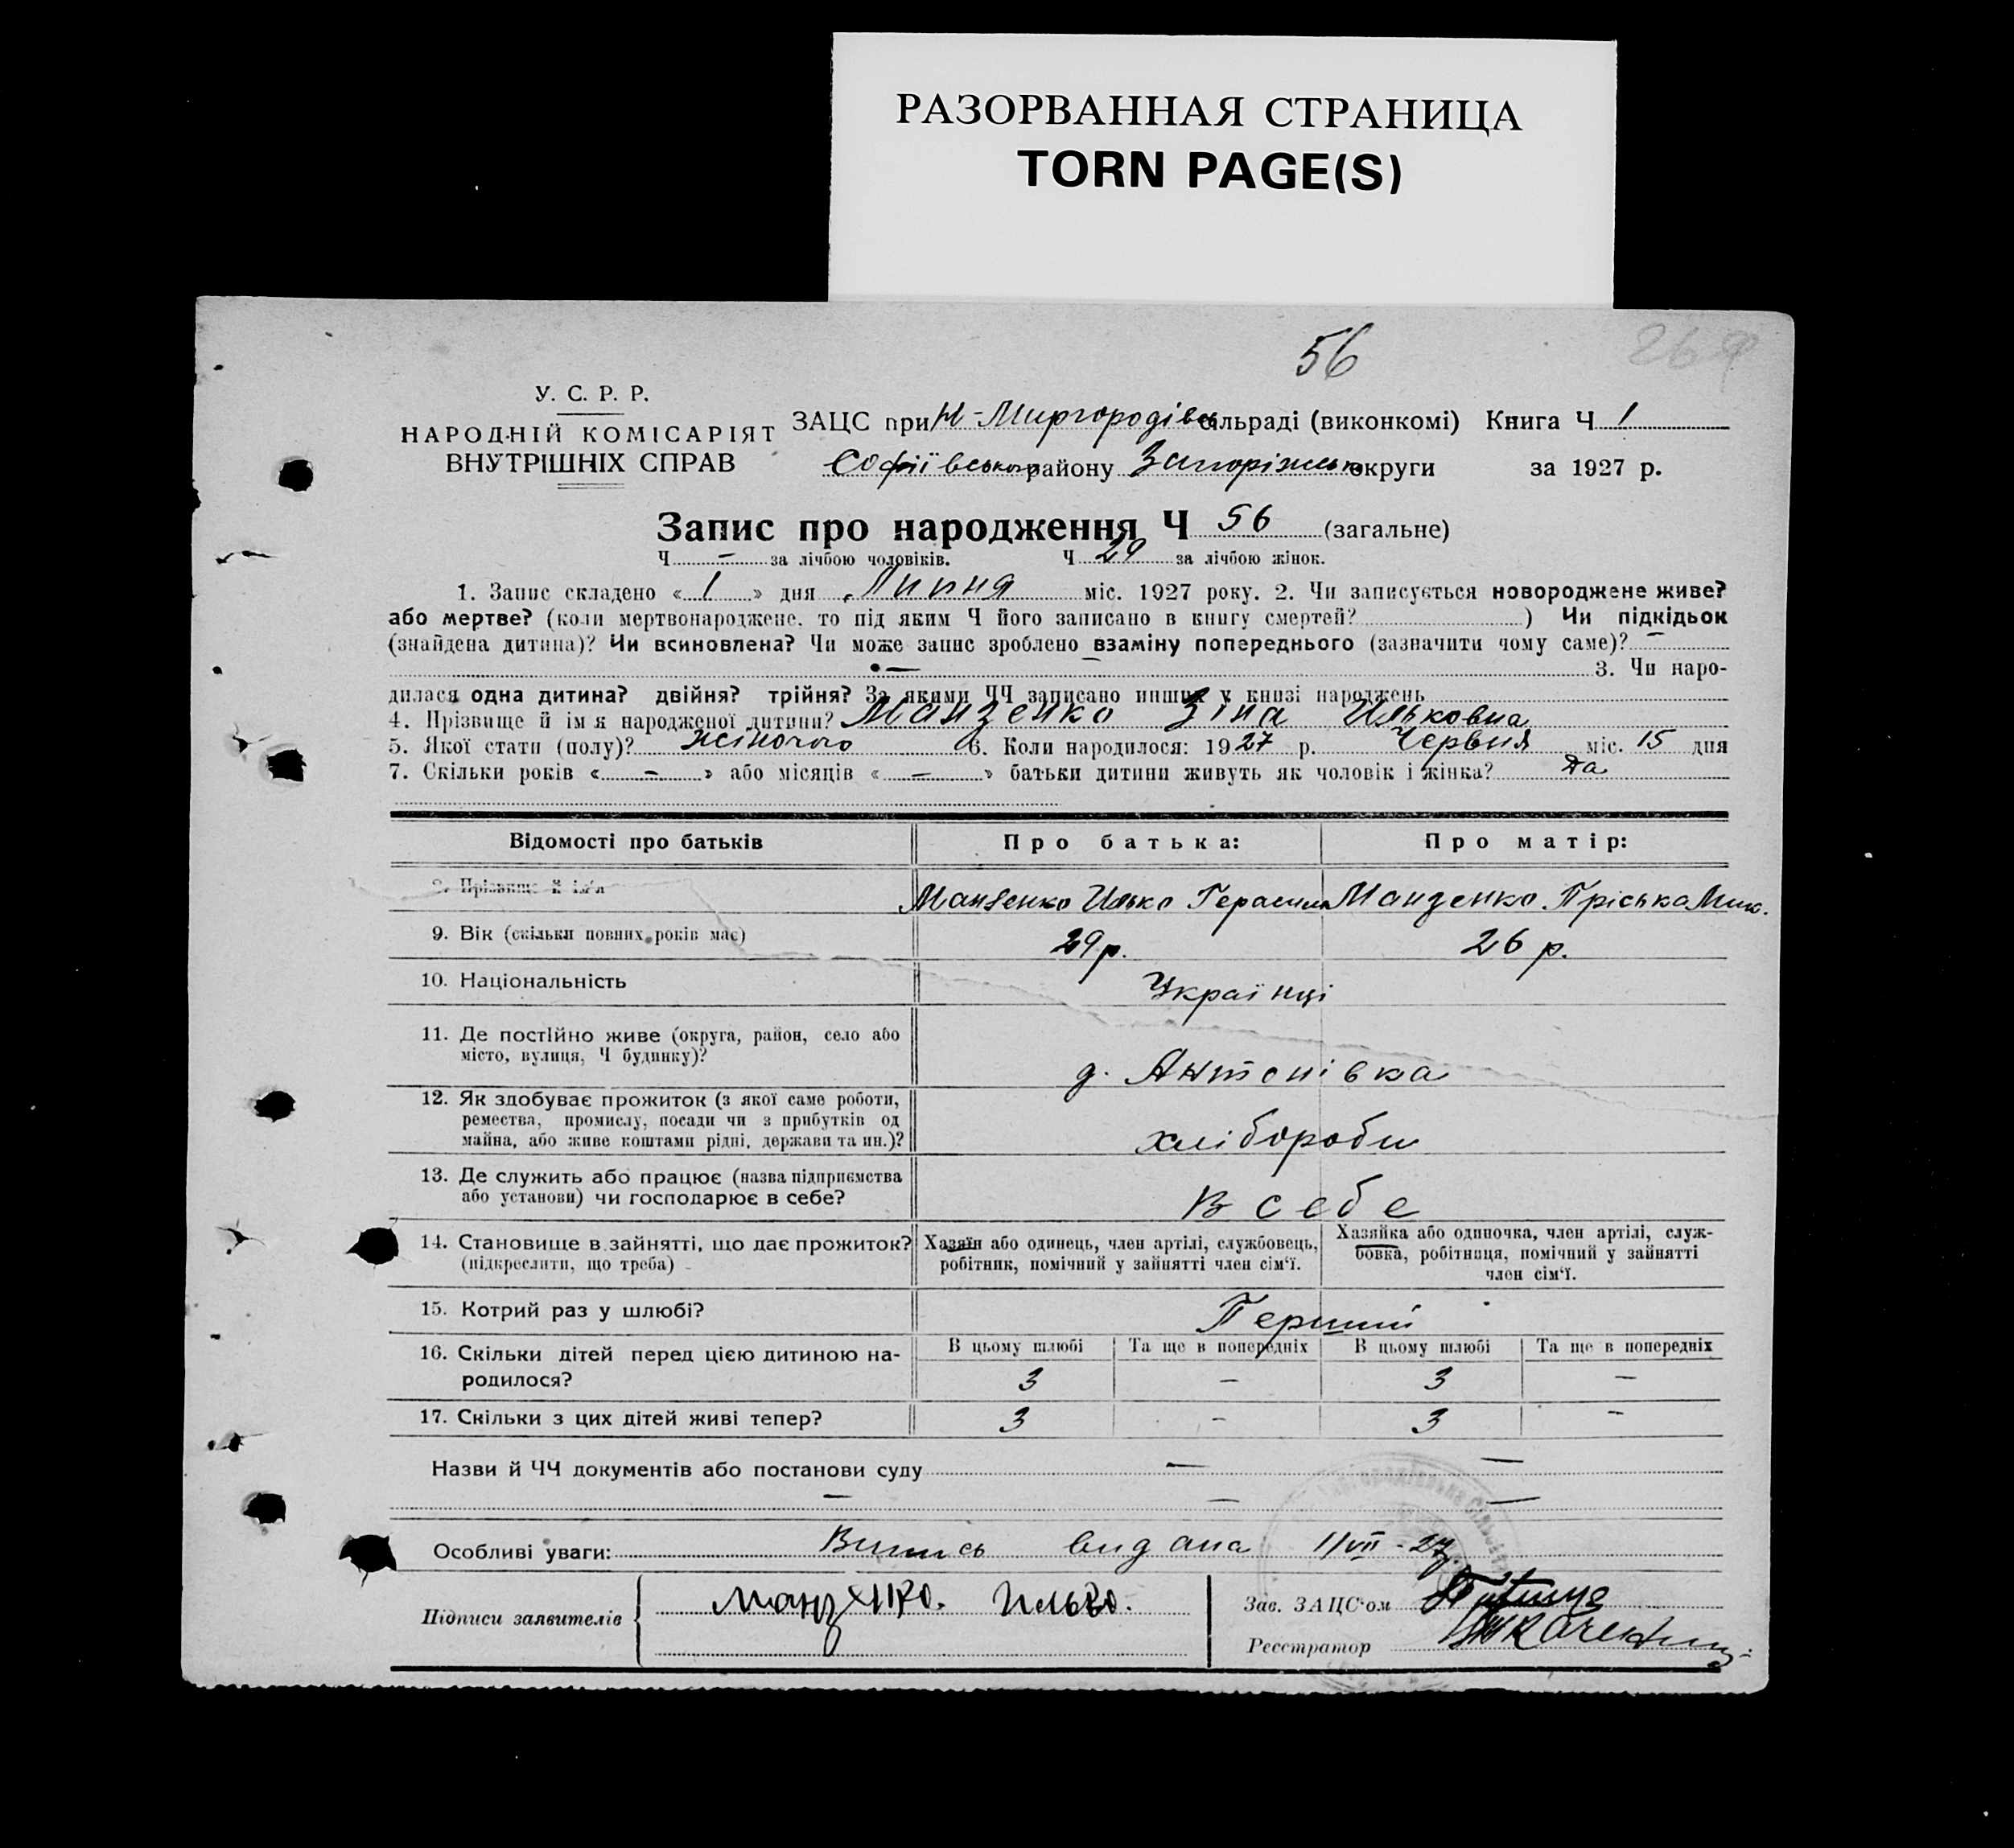 РАЗОРВАННАЯ СТРАНИЦА
TORN PAGE(S)
56
269
У. С. Р. Р.
НАРОДНІЙ КОМІСАРІЯТ
ВНУТРІШНІХ СПРАВ
ЗАЦС при Н-Миргородівс сільраді (виконкомі) Книга Ч 1
Софіївського району Запоріжськ округи за 1927 р.
Запис про народження Ч 56 (загальне)
Ч — за лічбою чоловіків. Ч 29 за лічбою жінок.
1. Запис складено « 1 » дня Липня міс. 1927 року. 2. Чи записується новороджене живе?
або мертве? (коли мертвонароджене, то під яким Ч його записано в книгу смертей? ) Чи підкідьок
(знайдена дитина)? Чи всиновлена? Чи може запис зроблено взаміну попереднього (зазначити чому саме)? —
— 3. Чи наро-
дилася одна дитина? двійня? трійня? За якими ЧЧ записано инших у книзі народжень
4. Прізвище й ім'я народженої дитини? Манзенко Зіна Ильковна
5. Якої стати (полу)? жіночого 6. Коли народилося: 1927 р. Червня міс. 15 дня
7. Скільки років « — » або місяців « — » батьки дитини живуть як чоловік і жінка? Да
Відомості про батьків Про батька: Про матір:
8. Прізвище й ім'я Манзенко Илько Герасим Манзенко Пріська Мик.
9. Вік (скільки повних років має) 29 р. 26 р.
10. Національність Українці
11. Де постійно живе (округа, район, село або
місто, вулиця, Ч будинку)? д. Антонівка
12. Як здобуває прожиток (з якої саме роботи,
ремества, промислу, посади чи з прибутків од
майна, або живе коштами рідні, держави та ин.)? хлібороби
13. Де служить або працює (назва підприємства
або установи) чи господарює в себе? В себе
14. Становище в зайнятті, що дає прожиток?
(підкреслити, що треба)
Хазяїн або одинець, член артілі, службовець,
робітник, помічний у зайнятті член сім'ї.
Хазяйка або одиночка, член артілі, служ-
бовка, робітниця, помічний у зайнятті
член сім'ї.
15. Котрий раз у шлюбі? Перший
16. Скільки дітей перед цією дитиною на-
родилося?
В цьому шлюбі Та ще в попередніх В цьому шлюбі Та ще в попередніх
3 — 3 —
17. Скільки з цих дітей живі тепер? 3 — 3 —
Назви й ЧЧ документів або постанови суду — —
— — —
Особливі уваги: Випись видана 1/VII - 27
Підписи заявителів Манзенко. Илько.
Зав. ЗАЦС'ом
Реєстратор